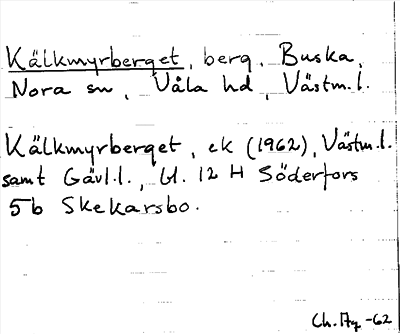 Kälkmyrberget, berg, Buska,
Nora sn, Våla hd, Västm.l.
Kälkmyrberget, ek (1962), Västm.l.
samt Gävl.l., bl. 12 H Söderfors
5b Skekarsbo.
-62